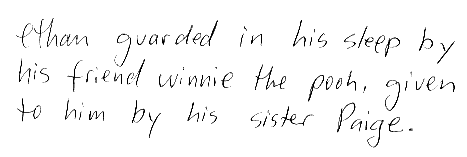 ethan guarded in his sleep by
his friend winnie the pooh, given
to him by his sister Paige.